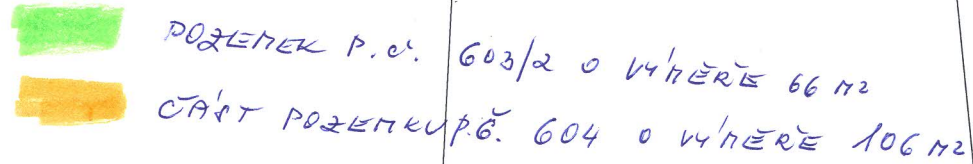 POZEMEK P.Č. 603/2 O VÝMĚŘE 66 M2
ČÁST POZEMKU P.Č. 604 O VÝMĚŘE 106 M2